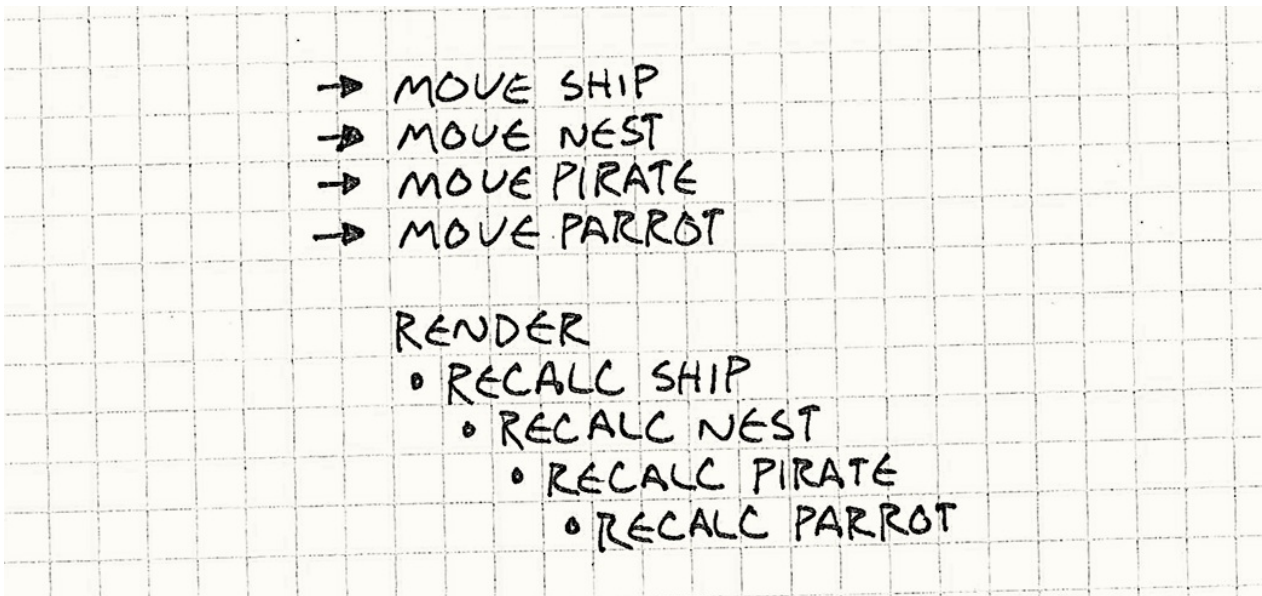 → MOVE SHIP
→ MOVE NEST
→ MOVE PIRATE
→ MOVE PARROT
RENDER
• RECALC SHIP
• RECALC NEST
• RECALC PIRATE
• RECALC PARROT